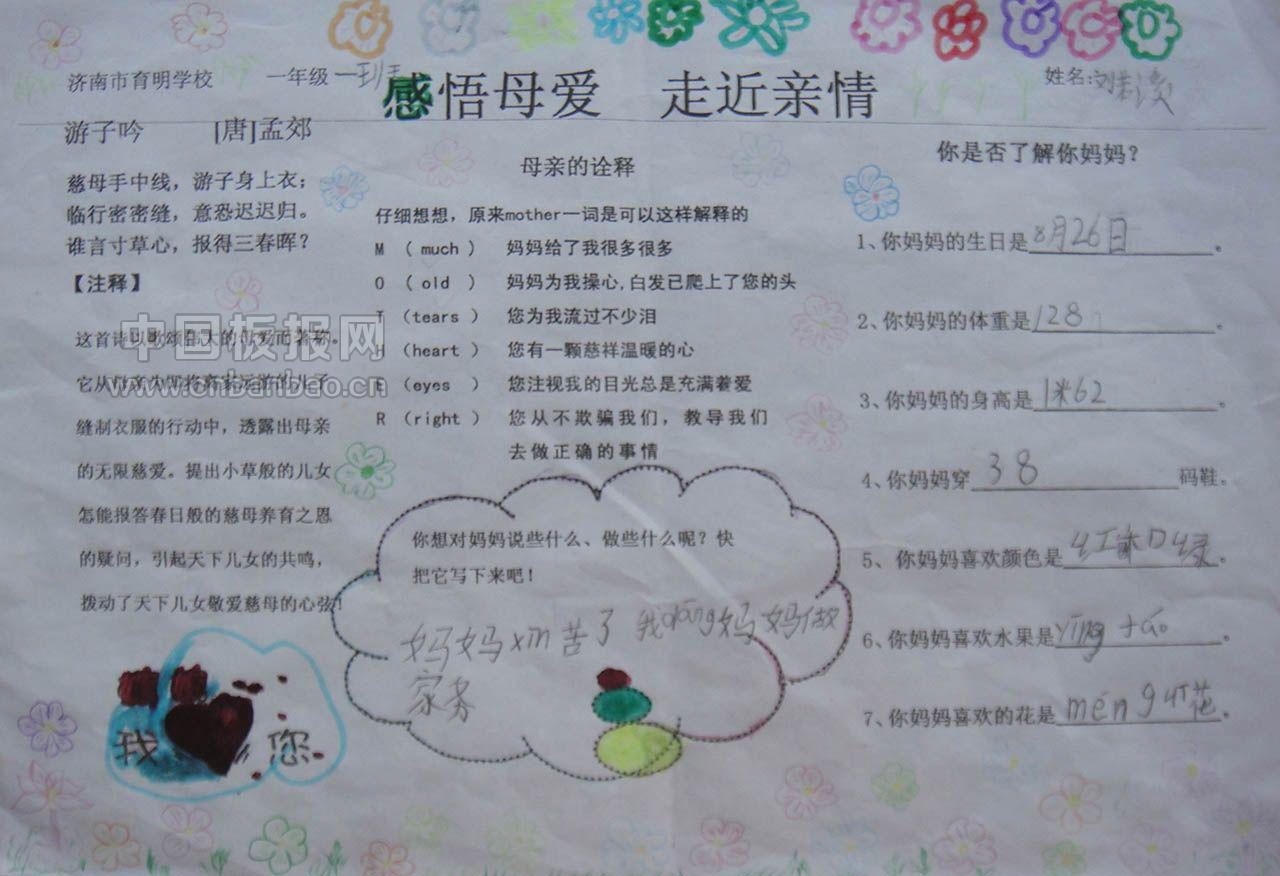 济南市育明学校 一年级 一班
感悟母爱 走近亲情
姓名:
游子吟 [唐]孟郊
慈母手中线，游子身上衣；
临行密密缝，意恐迟迟归。
谁言寸草心，报得三春晖？
【注释】
这首诗以歌颂伟大的母爱而著称。
它从母亲为即将离家远游的儿子
缝制衣服的行动中，透露出母亲
的无限慈爱。提出小草般的儿女
怎能报答春日般的慈母养育之恩
的疑问，引起天下儿女的共鸣，
拨动了天下儿女敬爱慈母的心弦！
中国板报网
www.cnbanbao.cn
我 您
母亲的诠释
仔细想想，原来mother一词是可以这样解释的
M （much） 妈妈给了我很多很多
O （old ） 妈妈为我操心,白发已爬上了您的头
T （tears） 您为我流过不少泪
H （heart） 您有一颗慈祥温暖的心
E （eyes ） 您注视我的目光总是充满着爱
R （right） 您从不欺骗我们，教导我们
去做正确的事情
你想对妈妈说些什么、做些什么呢？快
把它写下来吧！
妈妈xin苦了 我 妈妈做
家务
你是否了解你妈妈？
1、你妈妈的生日是8月26日。
2、你妈妈的体重是128。
3、你妈妈的身高是1米62。
4、你妈妈穿38码鞋。
5、你妈妈喜欢颜色是红和绿。
6、你妈妈喜欢水果是yīng táo。
7、你妈妈喜欢的花是